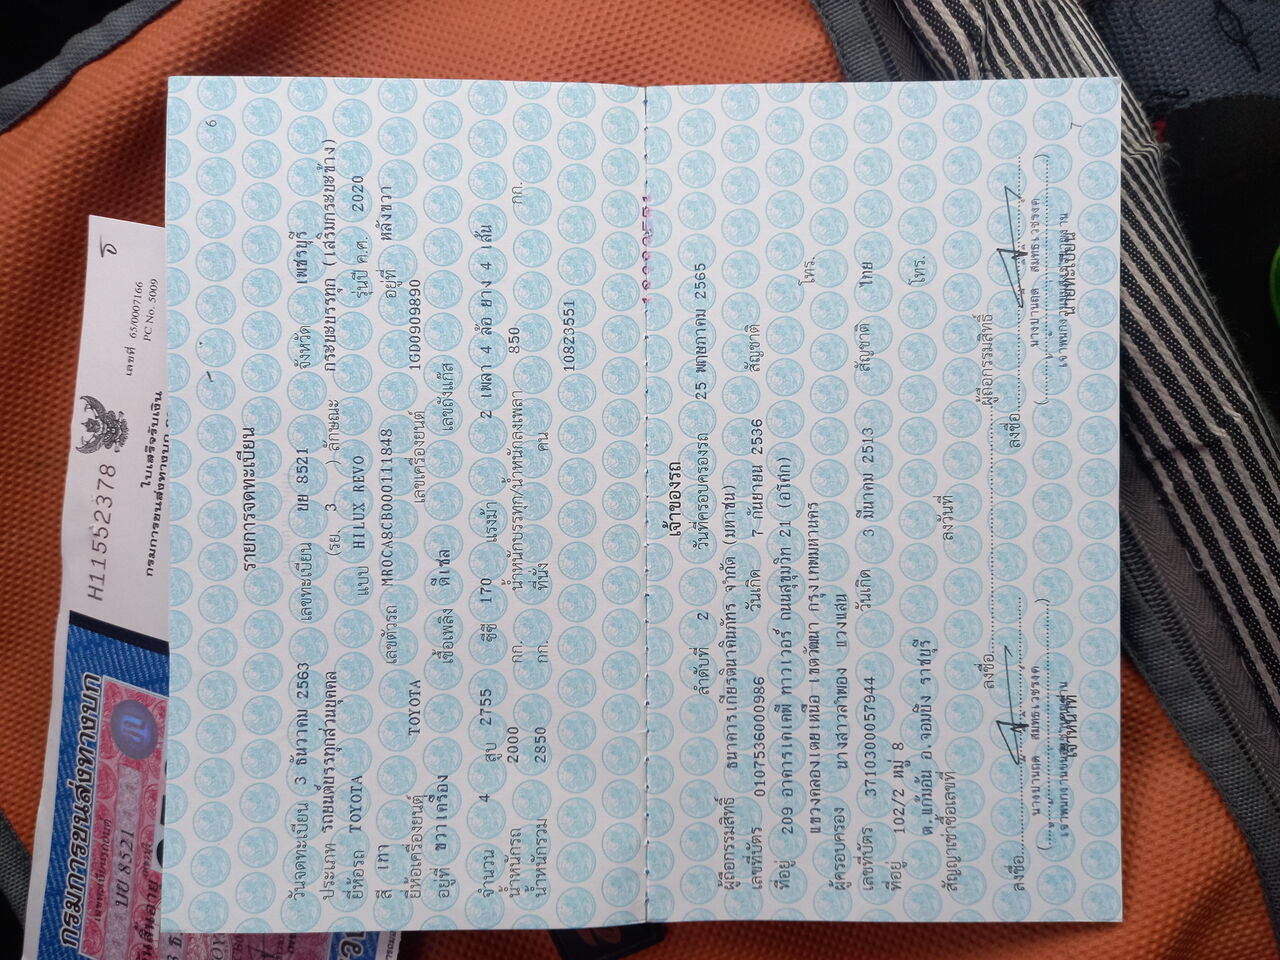 6
รายการจดทะเบียน
วันจดทะเบียน 3 ธันวาคม 2563 เลขทะเบียน บย 8521 จังหวัด เพชรบุรี
ประเภท รถยนต์บรรทุกส่วนบุคคล (รย. 3 ) ลักษณะ กระบะบรรทุก (เสริมกระบะข้าง)
ยี่ห้อรถ TOYOTA แบบ HILUX REVO รุ่นปี ค.ศ. 2020
สี เทา เลขตัวรถ MR0CA8CB000111848 อยู่ที่ หลังขวา
ยี่ห้อเครื่องยนต์ TOYOTA เลขเครื่องยนต์ 1GD0909890
อยู่ที่ ขวาเครื่อง เชื้อเพลิง ดีเซล เลขถังแก๊ส
จำนวน 4 สูบ 2755 ซีซี 170 แรงม้า 2 เพลา 4 ล้อ ยาง 4 เส้น
น้ำหนักรถ 2000 กก. น้ำหนักบรรทุก/น้ำหนักลงเพลา 850 กก.
น้ำหนักรวม 2850 กก. ที่นั่ง คน
10823551
เจ้าของรถ
ลำดับที่ 2 วันที่ครอบครองรถ 25 พฤษภาคม 2565
ผู้ถือกรรมสิทธิ์ ธนาคารเกียรตินาคินภัทร จำกัด (มหาชน)
เลขที่บัตร 0107536000986 วันเกิด 7 กันยายน 2536 สัญชาติ
ที่อยู่ 209 อาคารเคเคพี ทาวเวอร์ ถนนสุขุมวิท 21 (อโศก)
แขวงคลองเตยเหนือ เขตวัฒนา กรุงเทพมหานคร โทร.
ผู้ครอบครอง นางสาวลำพอง แวงแสน
เลขที่บัตร 3710300057944 วันเกิด 3 มีนาคม 2513 สัญชาติ ไทย
ที่อยู่ 102/2 หมู่ 8
ต.แก้มอ้น อ.จอมบึง ราชบุรี โทร.
สัญญาเช่าซื้อเลขที่ ลงวันที่
ลงชื่อ ผู้ถือกรรมสิทธิ์
ลงชื่อ ลงชื่อ
เจ้าหน้าที่ นายทะเบียน
7
H11552378
เลขที่ 65/0007166
PC No. 5009
ใบเสร็จรับเงิน
กรมการขนส่งทางบก
กรมการขนส่งทางบก
บย 8521